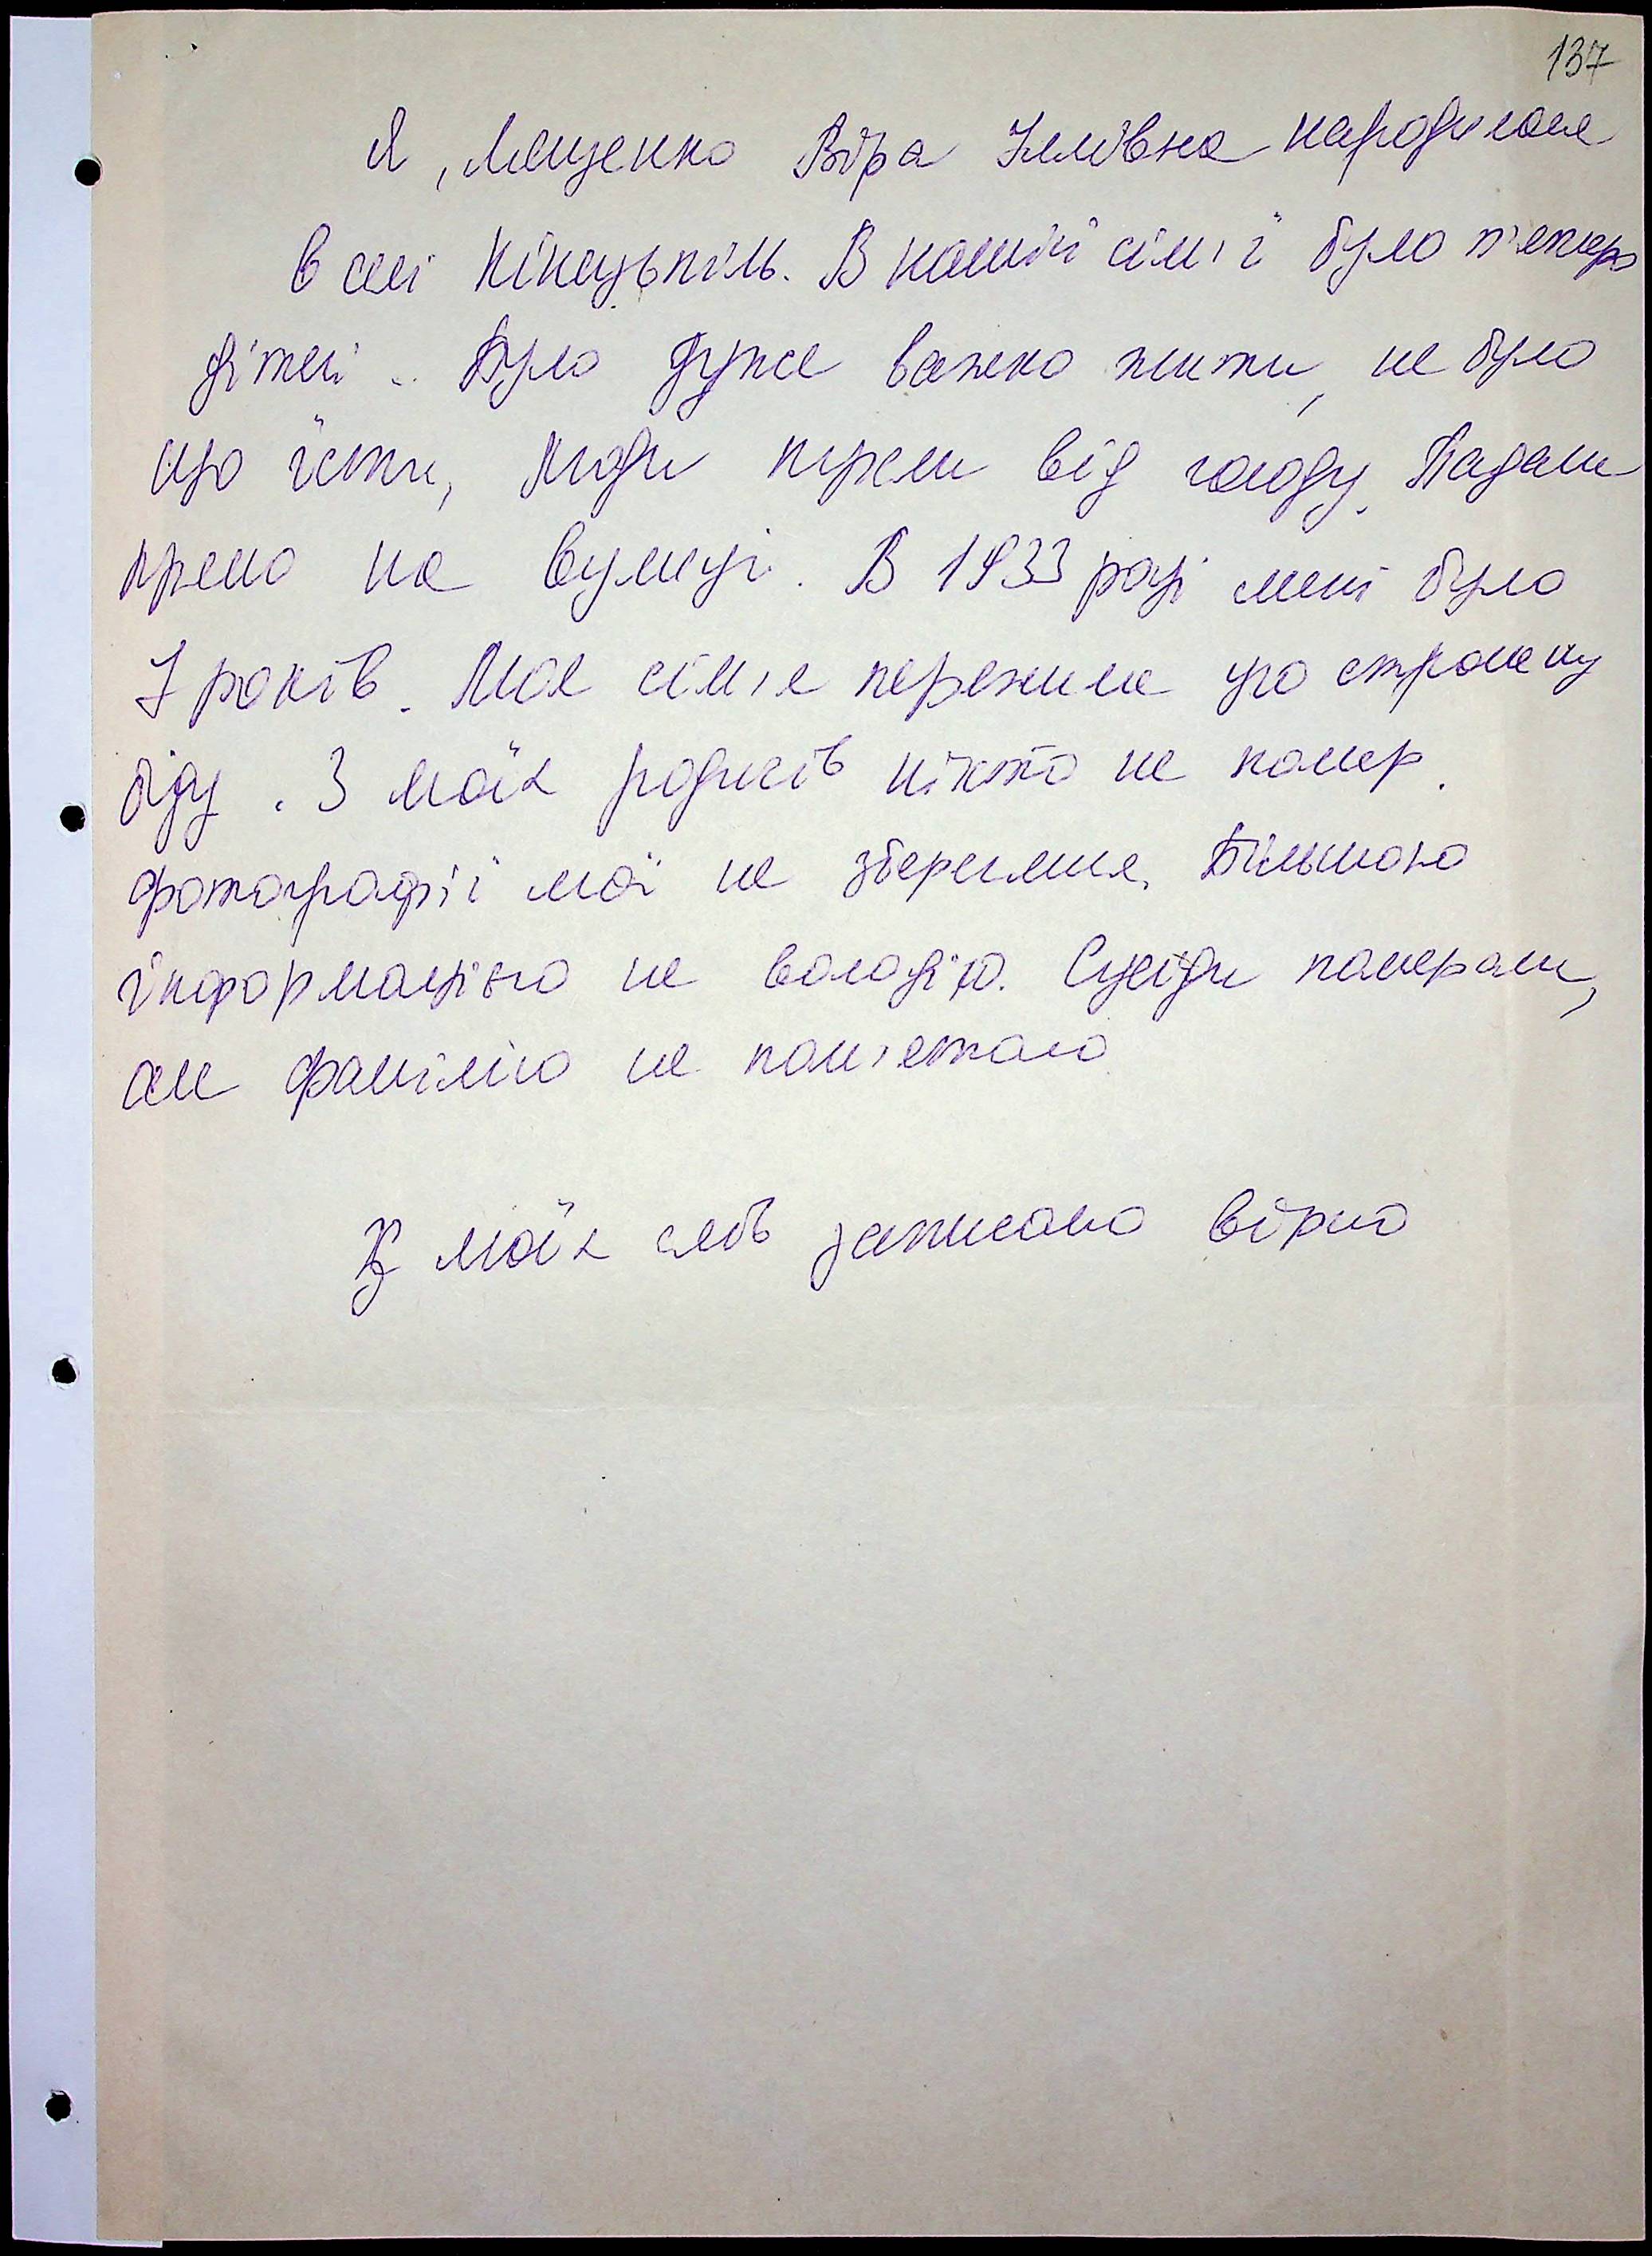 137
Я, Лященко Віра Іллівна народилася
в селі Кінецьпіль. В нашій сім'ї було п'ятеро
дітей. Було дуже важко жити, не було
що їсти, люди пухли від голоду. Падали
прямо на вулиці. В 1933 році мені було
7 років. Моя сім'я пережила цю страшну
біду. З моїх родичів ніхто не помер.
Фотографії мої не збереглися. Більшою
інформацією не володію. Сусіди помирали,
але фамілію не пам'ятаю
З моїх слів записано вірно